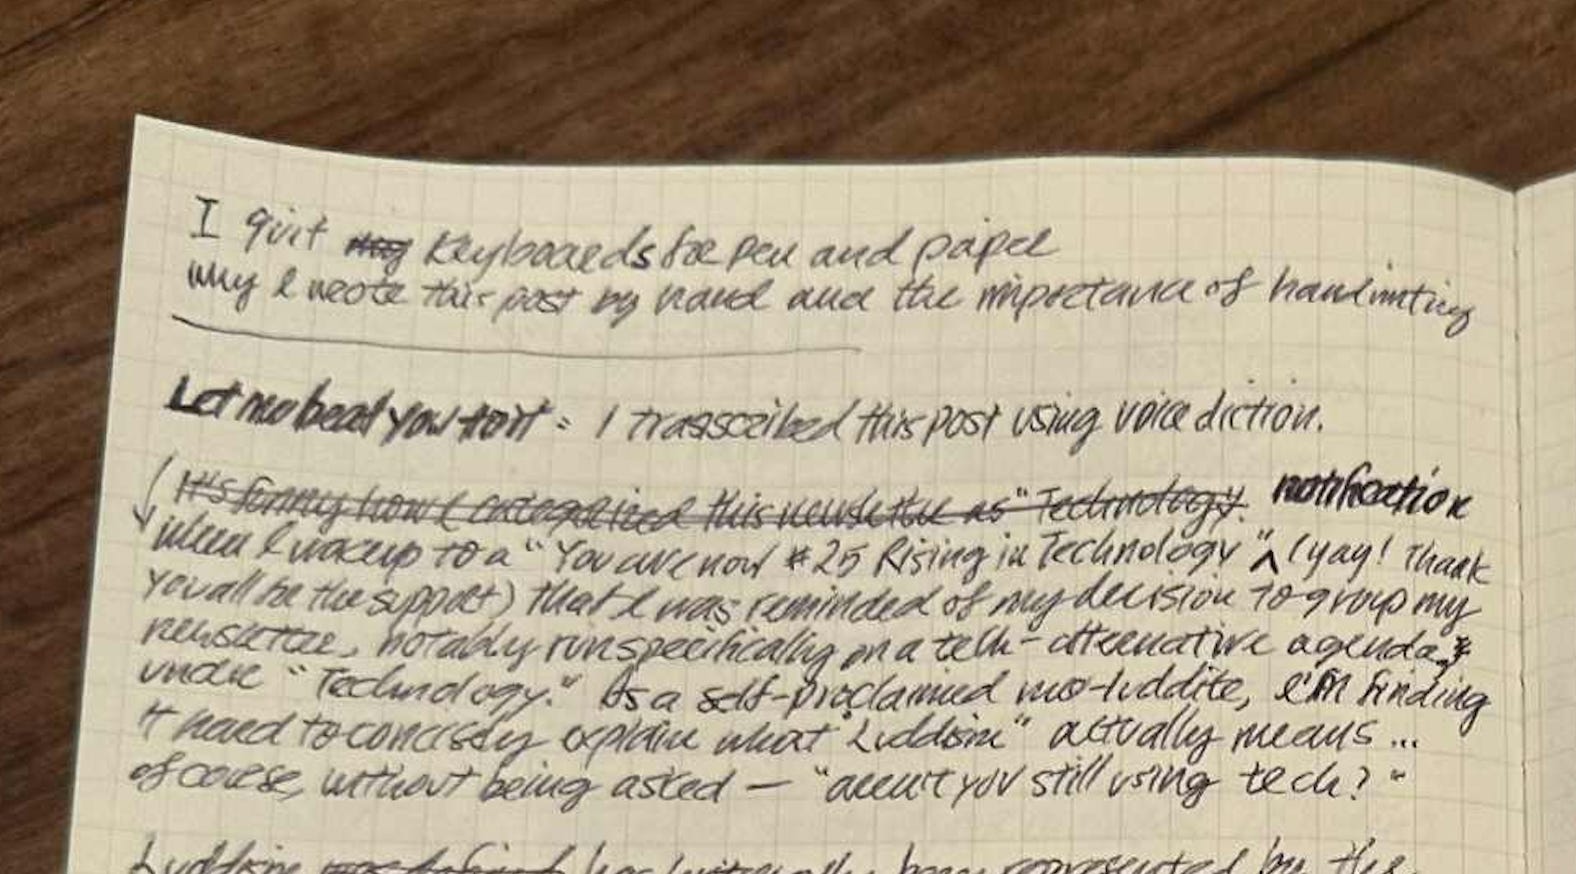 I quit Keyboards for pen and paper
why I wrote this post by hand and the importance of handwriting
Let me beat you to it: I transscribed this post using voice diction.
It's funny how I categorized this newsletter as "Technology". notification
when I wakeup to a "You are now #25 Rising in Technology" ^ (yay! Thank
you all for the support) that I was reminded of my decision to group my
newsletter, notably run specifically on a tech-alternative agenda,
under "Technology." As a self-proclaimed luddite, I'm finding
it hard to concisely explain what "Luddism" actually means...
of course, without being asked — "aren't you still using tech?"
Luddism been represented by the